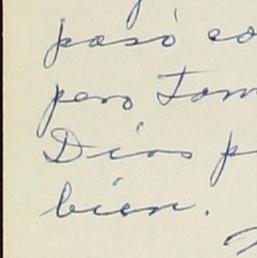 pasó co
pero tom
Dios p
bien.